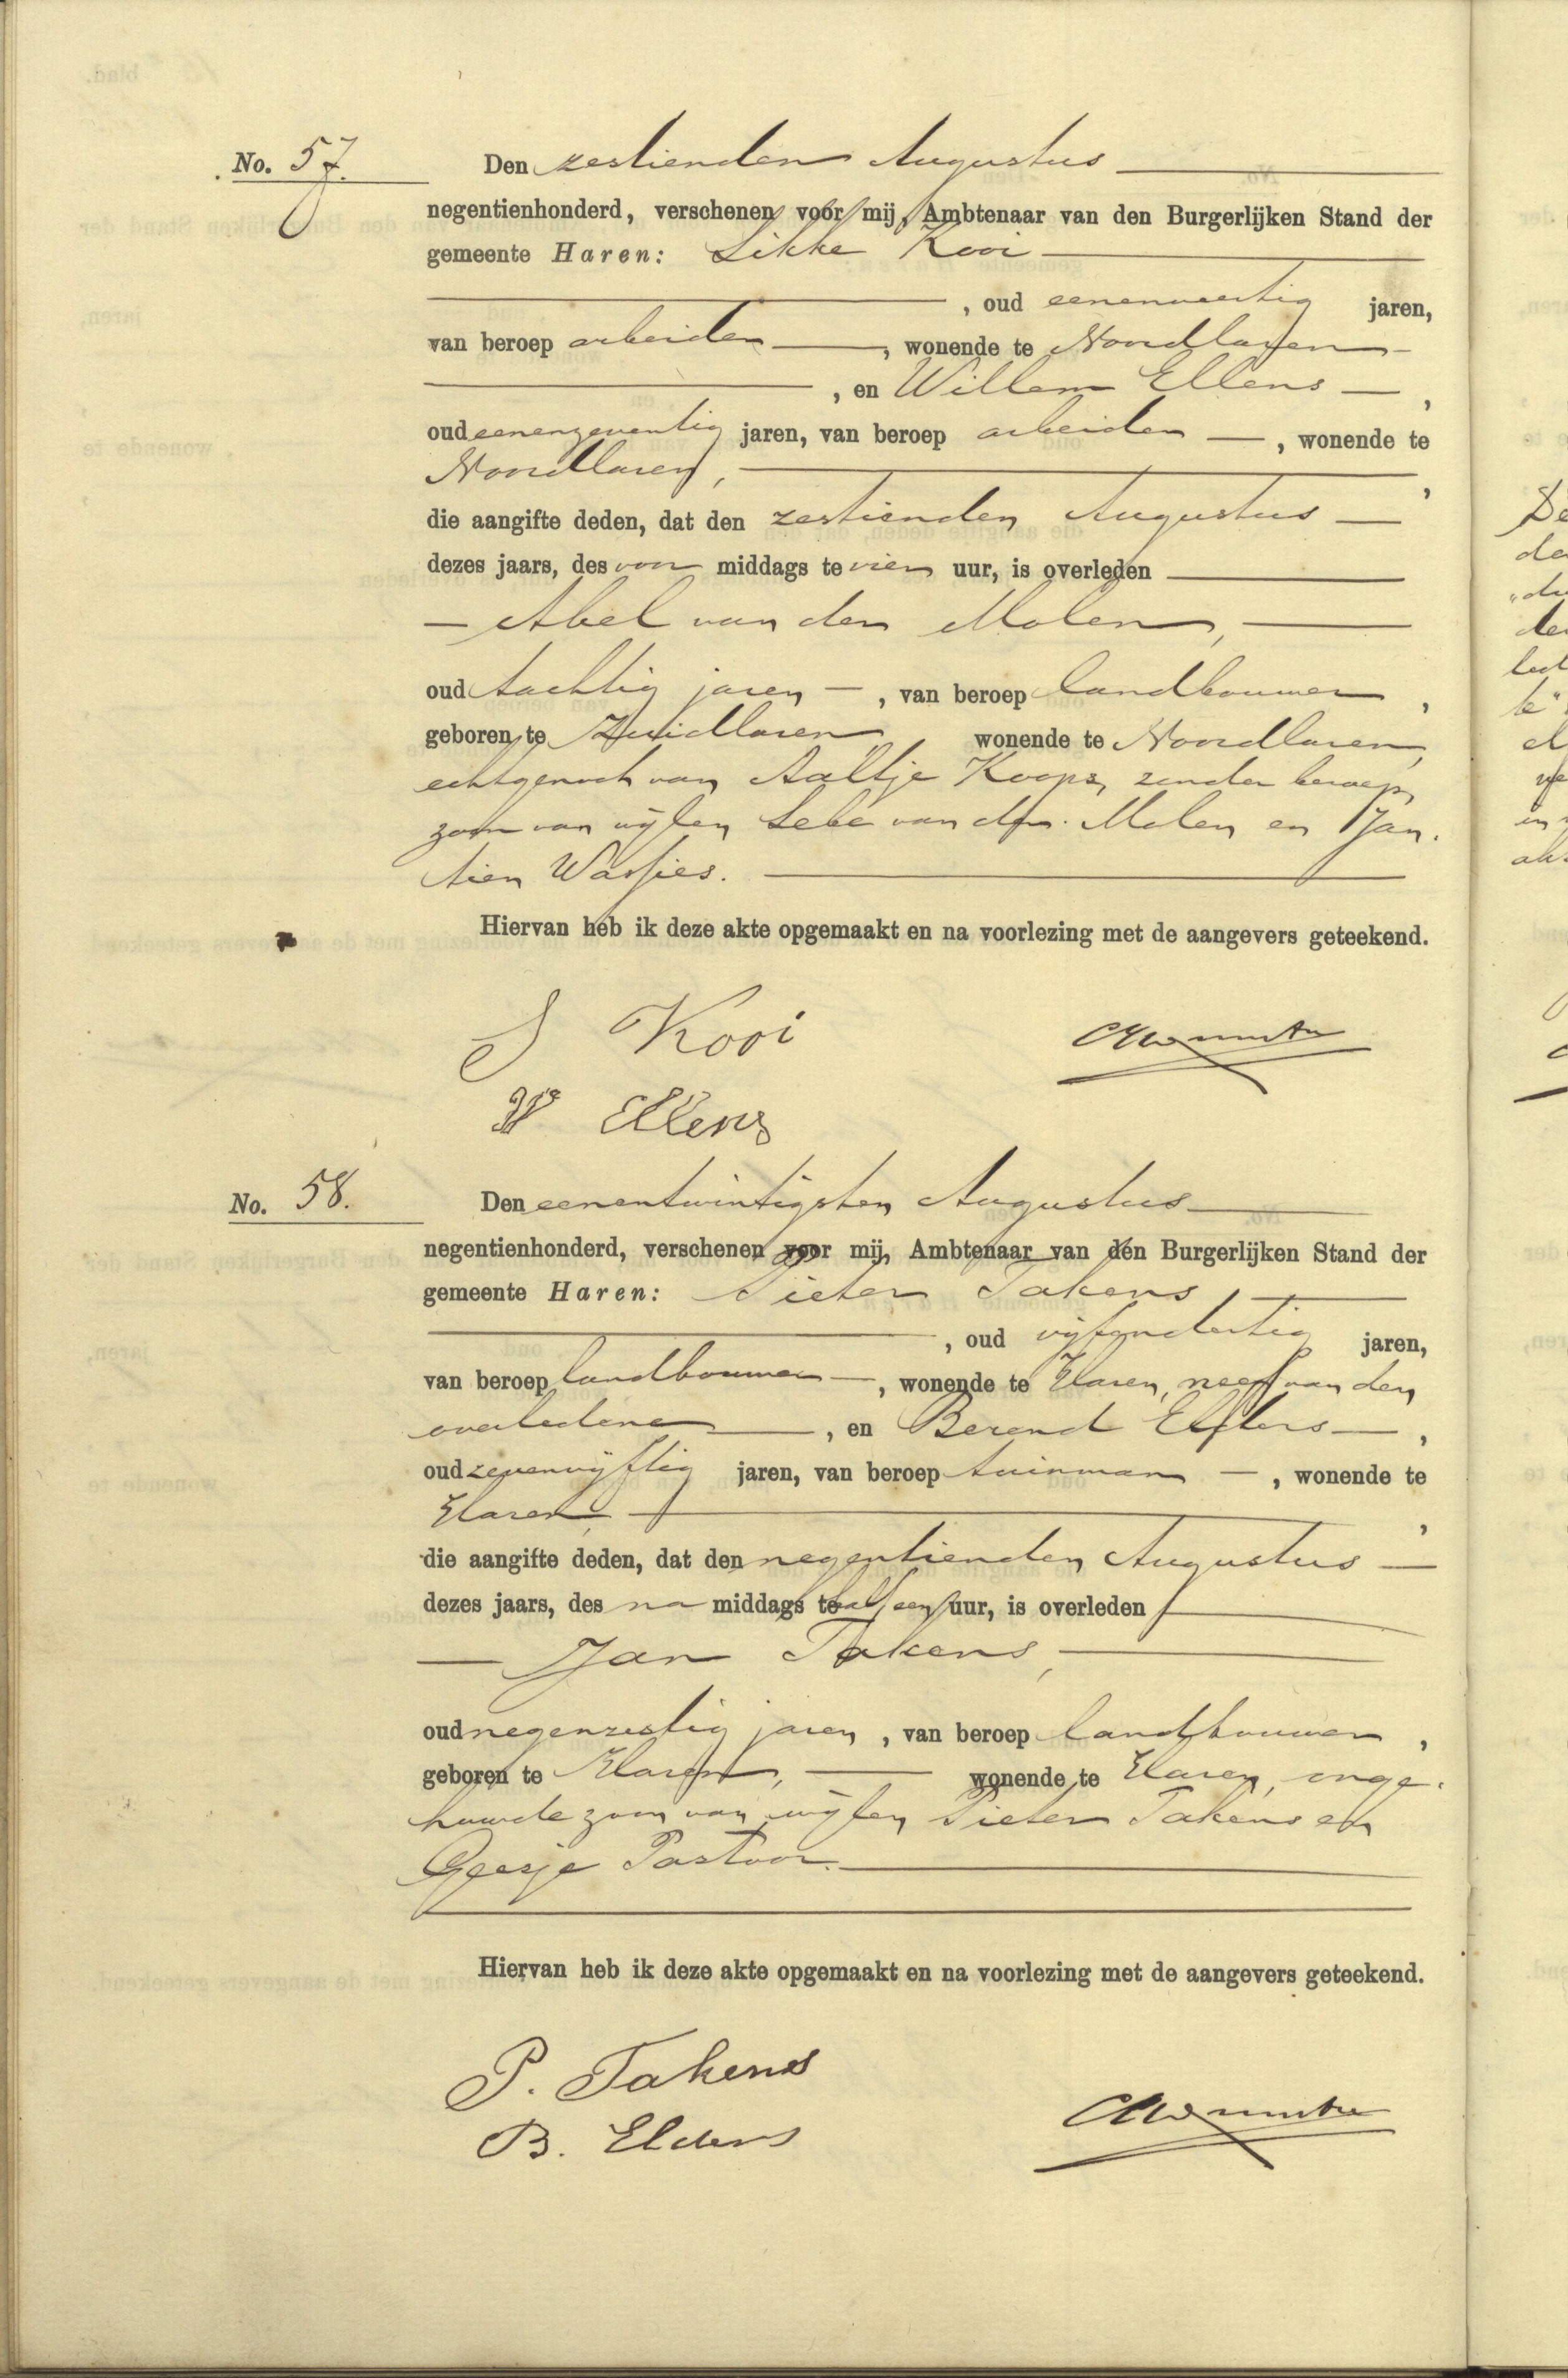 No. 57.
Den zestienden Augustus
negentienhonderd, verschenen voor mij, Ambtenaar van den Burgerlijken Stand der
gemeente Haren: Sikke Kooi
, oud eenenveertig jaren,
van beroep arbeider, wonende te Noordlaren
, en Willem Ellens,
oud eenenzeventig jaren, van beroep arbeider, wonende te
Noordlaren,
die aangifte deden, dat den zestienden Augustus
dezes jaars, des voor middags te vier uur, is overleden
Abel van der Molen,
oud tachtig jaren, van beroep landbouwer,
geboren te Zuidlaren, wonende te Noordlaren,
echtgenoot van Aaltje Koops, zonder beroep,
zoon van wijlen Sebe van der Molen en Jan-
tien Wassies.
Hiervan heb ik deze akte opgemaakt en na voorlezing met de aangevers geteekend.
S Kooi
W Ellens
No. 58.
Den eenentwintigsten Augustus
negentienhonderd, verschenen voor mij, Ambtenaar van den Burgerlijken Stand der
gemeente Haren: Pieter Takens,
, oud vijfendertig jaren,
van beroep landbouwer, wonende te Haren, neef van den
overledene, en Berend Elders,
oud zevenenvijftig jaren, van beroep tuinman, wonende te
Haren,
die aangifte deden, dat den negentienden Augustus
dezes jaars, des na middags te half een uur, is overleden
Jan Takens,
oud negenzestig jaren, van beroep landbouwer,
geboren te Haren, wonende te Haren, onge-
huwde zoon van wijlen Pieter Takens en
Geesje Pastoor.
Hiervan heb ik deze akte opgemaakt en na voorlezing met de aangevers geteekend.
P. Takens
B. Elders